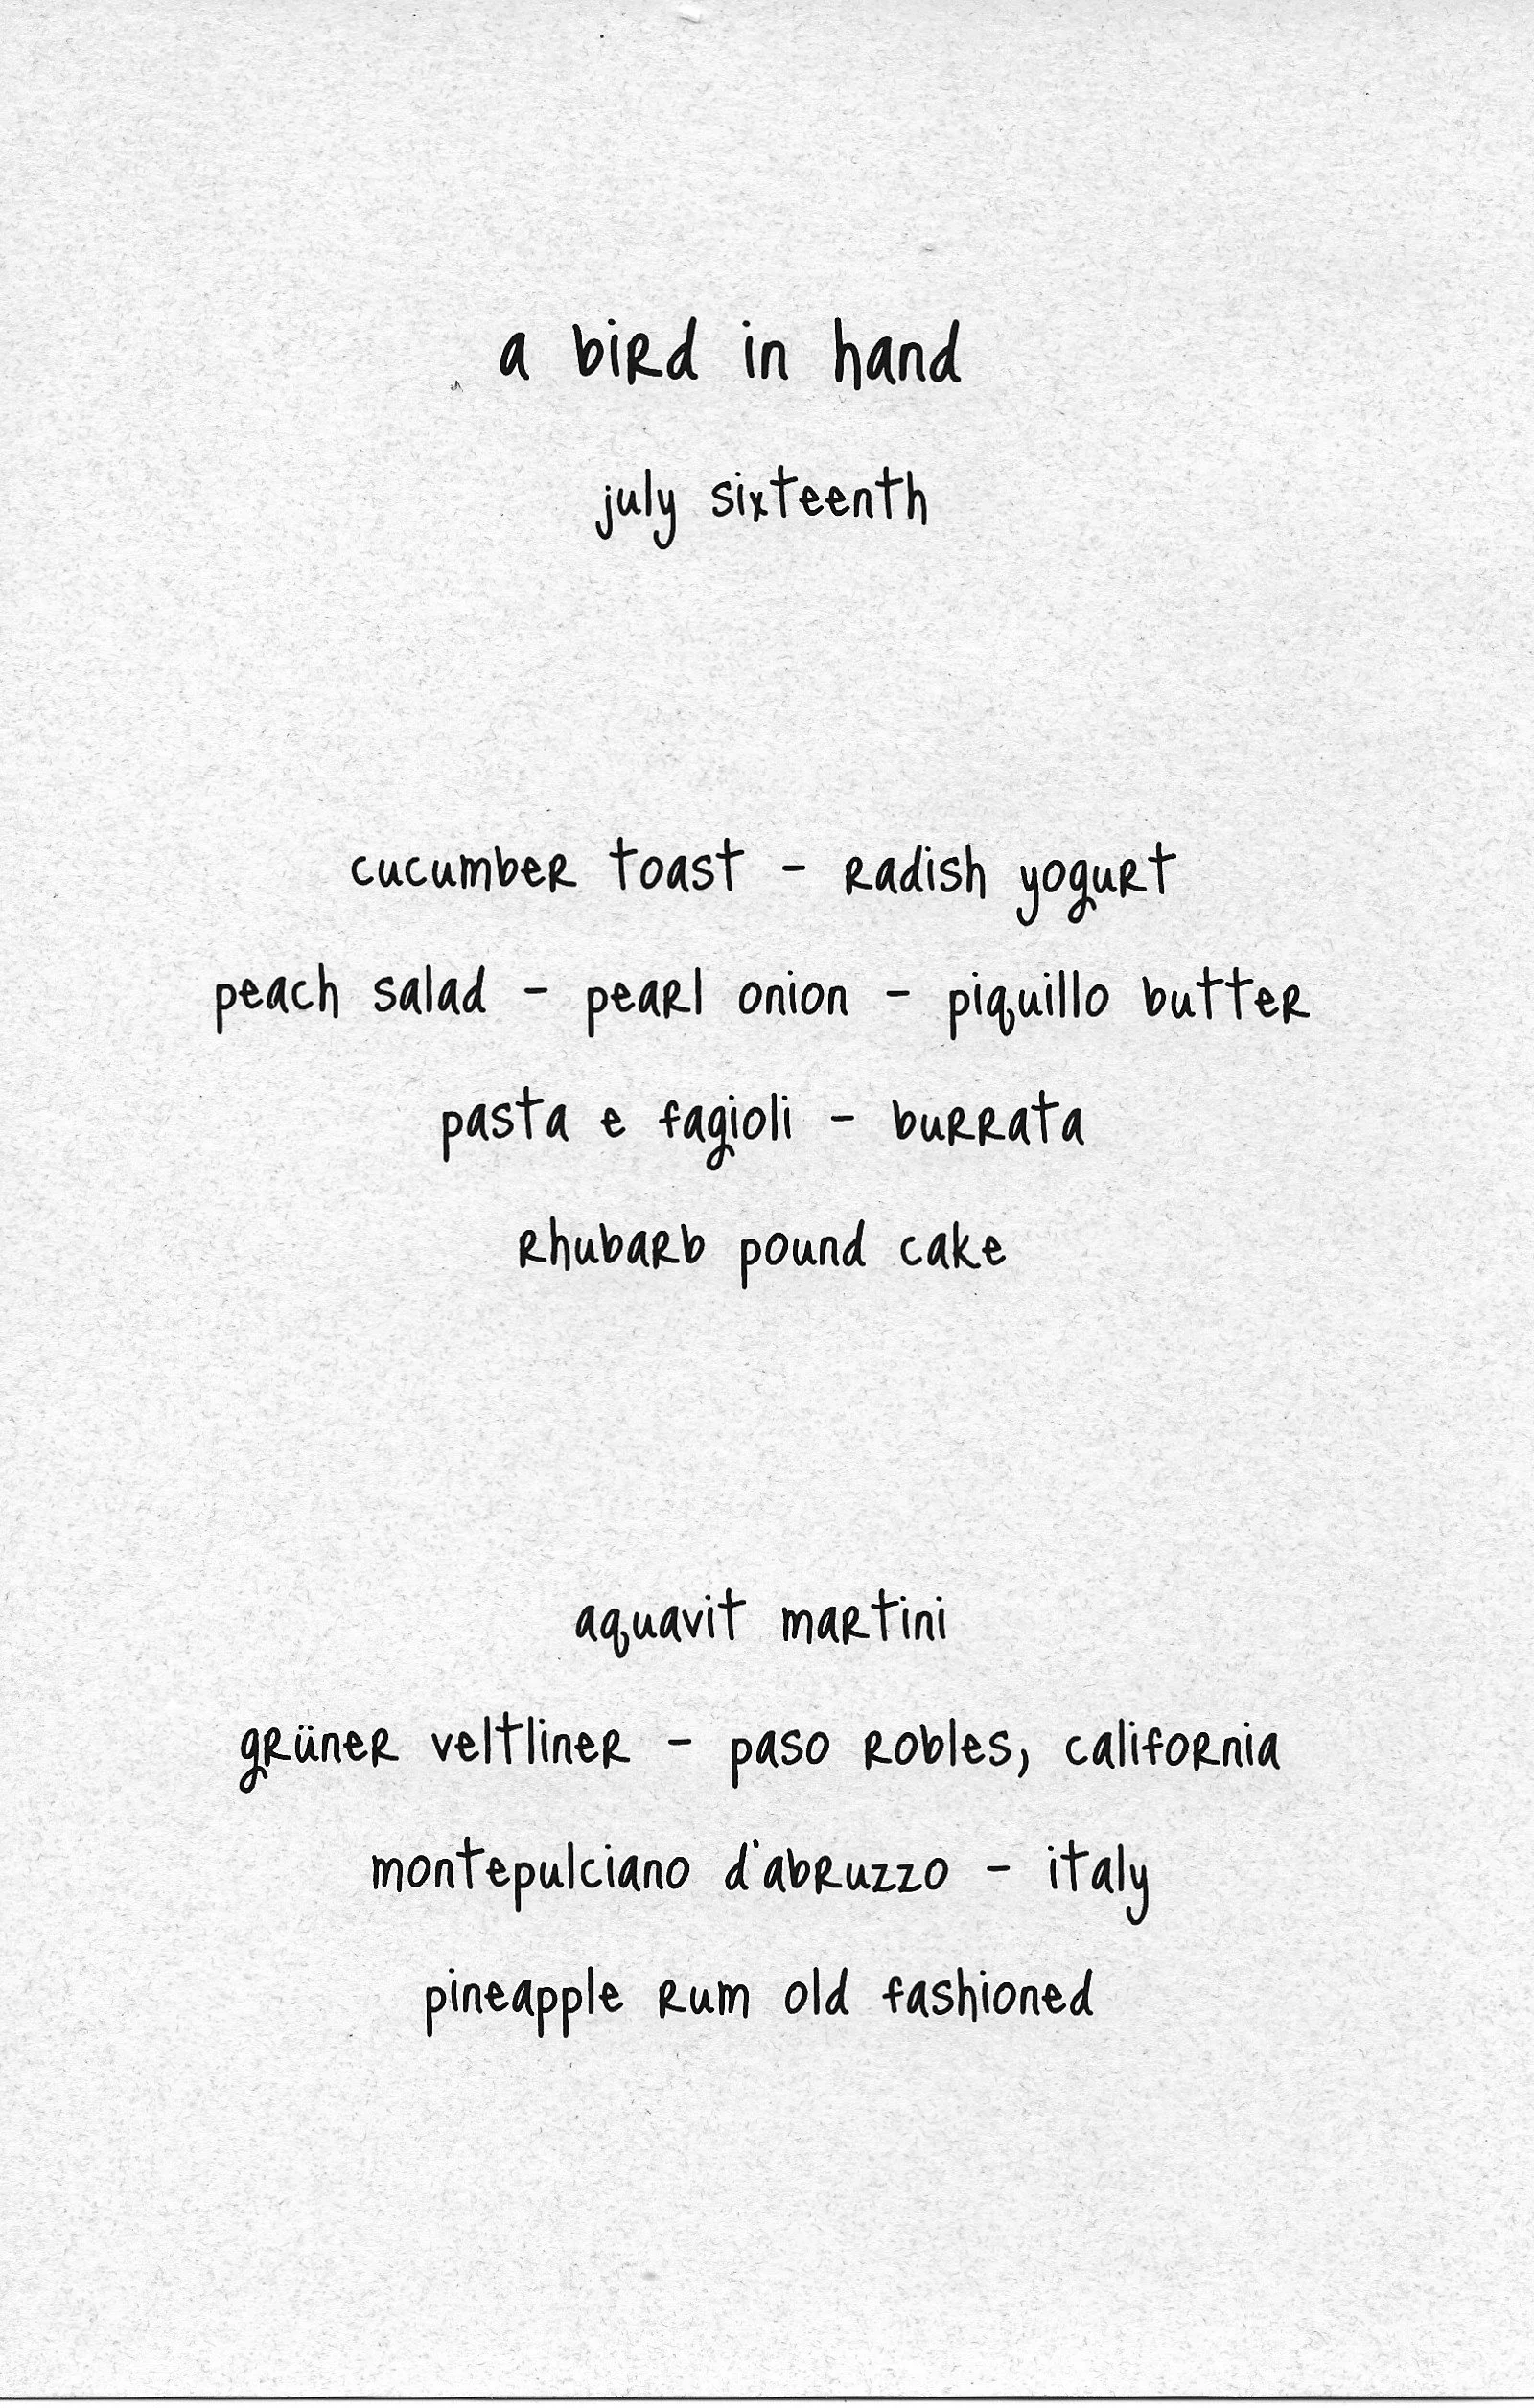 a bird in hand
july sixteenth
cucumber toast - radish yogurt
peach salad - pearl onion - piquillo butter
pasta e fagioli - burrata
rhubarb pound cake
aquavit martini
grüner veltliner - paso robles, california
montepulciano d'abruzzo - italy
pineapple rum old fashioned